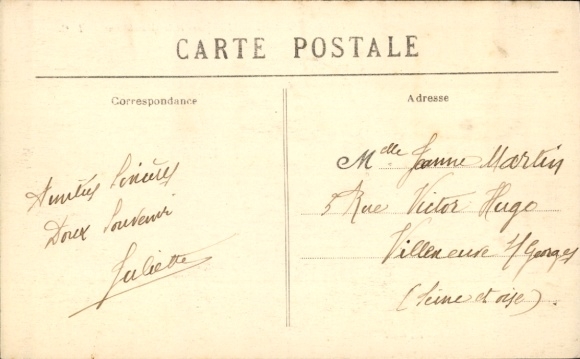 CARTE POSTALE
Correspondance
Adresse
Amitiés Sincères
Doux Souvenir
Juliette
Melle Jeanne Martin
5 Rue Victor Hugo
Villeneuve S/ Georges
(Seine et oise)